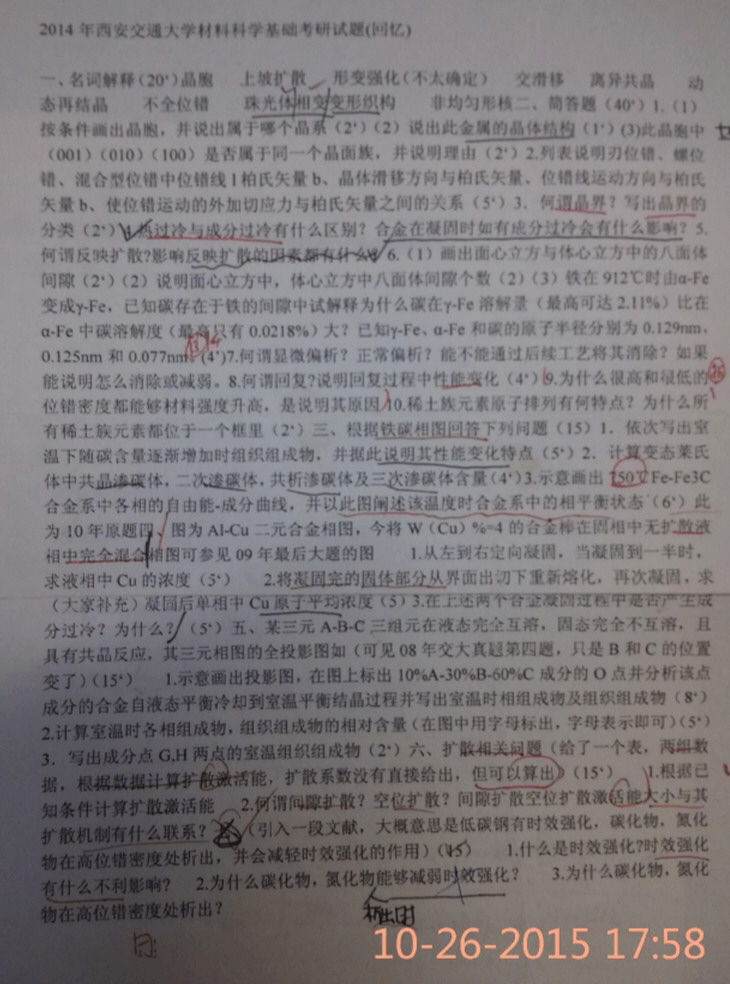 2014 年西安交通大学材料科学基础考研试题(回忆)
一、名词解释(20‘)晶胞 上坡扩散 形变强化(不太确定) 交滑移 离异共晶 动
态再结晶 不全位错 珠光体相变变形织构 非均匀形核二、简答题(40‘)1.(1)
按条件画出晶胞，并说出属于哪个晶系(2‘)(2)说出此金属的晶体结构(1‘)(3)此晶胞中
(001)(010)(100)是否属于同一个晶面族，并说明理由(2‘)2.列表说明刃位错、螺位
错、混合型位错中位错线 l 柏氏矢量 b、晶体滑移方向与柏氏矢量、位错线运动方向与柏氏
矢量 b、使位错运动的外加切应力与柏氏矢量之间的关系(5‘)3．何谓晶界？写出晶界的
分类(2‘)4.热过冷与成分过冷有什么区别？合金在凝固时如有成分过冷会有什么影响？5.
何谓反映扩散?影响反映扩散的因素都有什么? 6.(1)画出面心立方与体心立方中的八面体
间隙(2‘)(2)说明面心立方中，体心立方中八面体间隙个数(2)(3)铁在 912℃时由α-Fe
变成γ-Fe，已知碳存在于铁的间隙中试解释为什么碳在γ-Fe 溶解量(最高可达 2.11%)比在
α-Fe 中碳溶解度(最高只有 0.0218%)大？已知γ-Fe、α-Fe 和碳的原子半径分别为 0.129nm、
0.125nm 和 0.077nm (4‘)7.何谓显微偏析？正常偏析？能不能通过后续工艺将其消除？如果
能说明怎么消除或减弱。8.何谓回复?说明回复过程中性能变化(4‘)9.为什么很高和很低的
位错密度都能够材料强度升高，是说明其原因 10.稀土族元素原子排列有何特点？为什么所
有稀土族元素都位于一个框里(2‘)三、根据铁碳相图回答下列问题(15)1．依次写出室
温下随碳含量逐渐增加时组织组成物，并据此说明其性能变化特点(5‘)2．计算变态莱氏
体中共晶渗碳体，二次渗碳体，共析渗碳体及三次渗碳体含量(4‘)3.示意画出 750℃Fe-Fe3C
合金系中各相的自由能-成分曲线，并以此图阐述该温度时合金系中的相平衡状态‘(6‘)此
为 10 年原题四、图为 Al-Cu 二元合金相图，今将 W(Cu)%=4 的合金棒在固相中无扩散液
相中完全混合相图可参见 09 年最后大题的图 1.从左到右定向凝固，当凝固到一半时，
求液相中 Cu 的浓度(5‘) 2.将凝固完的固体部分从界面出切下重新熔化，再次凝固，求
(大家补充)凝固后单相中 Cu 原子平均浓度(5)3.在上述两个合金凝固过程中是否产生成
分过冷？为什么？(5‘)五、某三元 A-B-C 三组元在液态完全互溶，固态完全不互溶，且
具有共晶反应，其三元相图的全投影图如(可见 08 年交大真题第四题，只是 B 和 C 的位置
变了)(15‘) 1.示意画出投影图，在图上标出 10%A-30%B-60%C 成分的 O 点并分析该点
成分的合金自液态平衡冷却到室温平衡结晶过程并写出室温时相组成物及组织组成物(8‘)
2.计算室温时各相组成物，组织组成物的相对含量(在图中用字母标出，字母表示即可)(5‘)
3．写出成分点 G,H 两点的室温组织组成物(2‘)六、扩散相关问题(给了一个表，两组数
据，根据数据计算扩散激活能，扩散系数没有直接给出，但可以算出)(15‘) 1.根据已
知条件计算扩散激活能 2.何谓间隙扩散？空位扩散？间隙扩散空位扩散激活能大小与其
扩散机制有什么联系？ (引入一段文献，大概意思是低碳钢有时效强化，碳化物，氮化
物在高位错密度处析出，并会减轻时效强化的作用)(15) 1.什么是时效强化?时效强化
有什么不利影响？ 2.为什么碳化物，氮化物能够减弱时效强化？ 3.为什么碳化物，氮化
物在高位错密度处析出？
析出时
10-26-2015 17:58